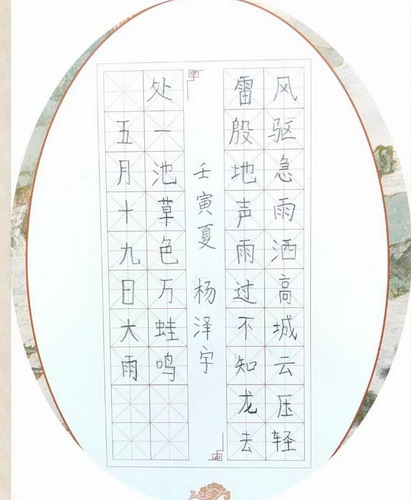 风驱急雨洒高城云压轻
雷殷地声雨过不知龙去
处一池草色万蛙鸣
五月十九日大雨
壬寅夏 杨泽宇